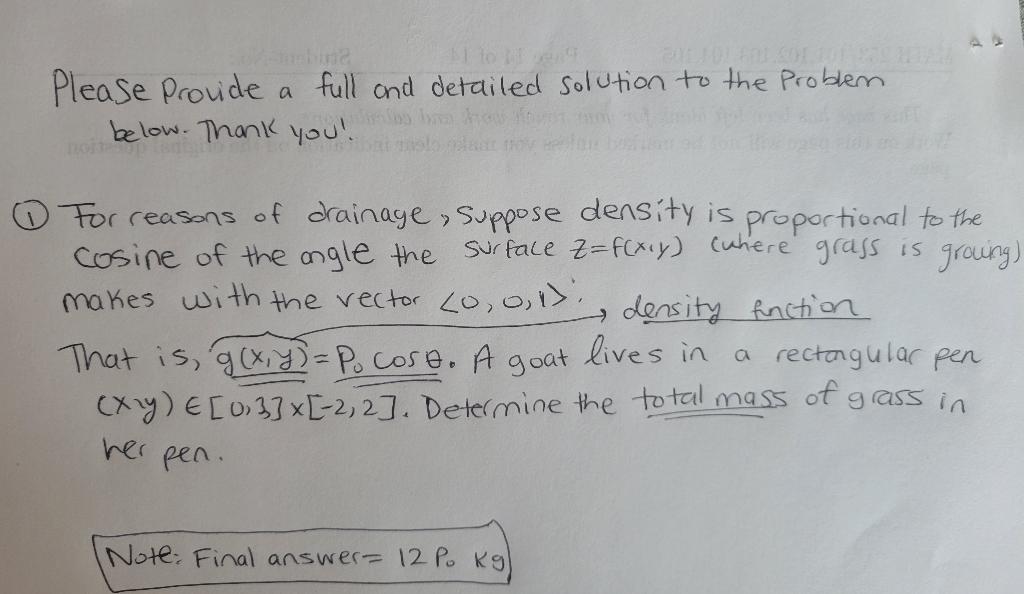 Please Provide a full and detailed solution to the Problem
below. Thank you!
① For reasons of drainage, suppose density is proportional to the
cosine of the angle the surface z=f(x,y) (where grass is growing)
makes with the vector <0,0,1>.
density function
That is, g(x,y) = P₀ cosθ. A goat lives in a rectangular pen
(x,y) ∈ [0,3]x[-2,2]. Determine the total mass of grass in
her pen.
Note: Final answer= 12 P₀ kg